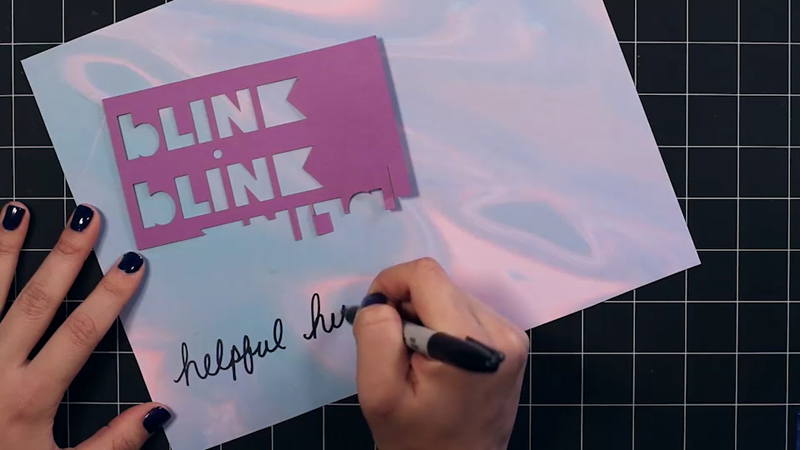 bLINK
bLINK
helpful hu